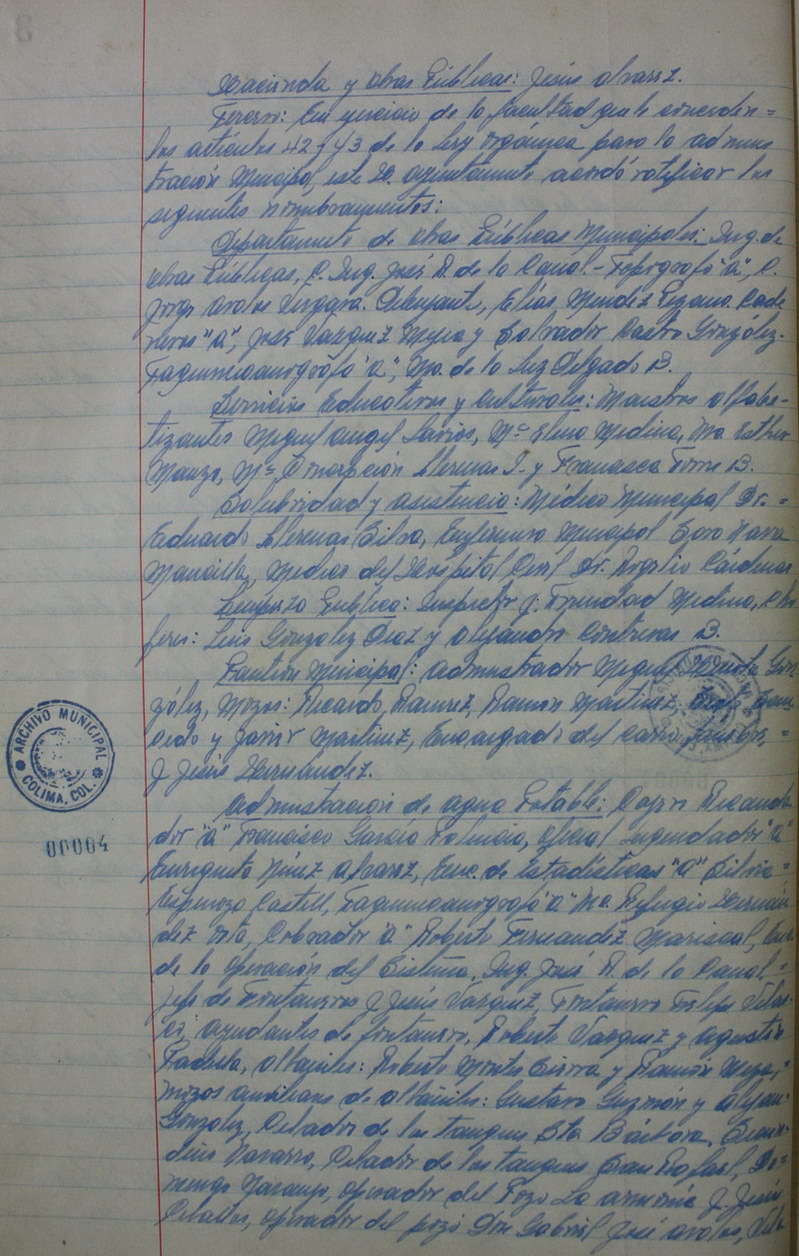 Hacienda y Obras Públicas: Jesús Alvarez.
Tercero: En ejercicio de la facultad que le conceden=
los artículos 42 y 43 de la Ley Orgánica para la adminis
tración Municipal, este H. ayuntamiento acordó ratificar los
siguientes nombramientos:
Departamento de Obras Públicas Municipales: Ing. de
Obras Públicas, C. Ing. José R. de la Canal.- Topógrafo "a", C.
Jorge avalos Vergara. Dibujante, Elías Mendez Lizama. Cade
neros "a", José Vazquez Mejía y Salvador Castro González.
Taquimecanógrafo "a", Ma. de la Luz Delgado B.
Servicios Educativos y Culturales: Maestros alfabe-
tizantes Miguel angel Larios, Ma Elena Medina, Ma. Esther
Manzo, Ma. Concepción Llerenas y Francisca Torres B.
Salubridad y asistencia: Médico Municipal Dr.=
Eduardo Llerenas Silva, Enfermera Municipal Sara Nava
Mancilla, Medico del Hospital Civil Dr. Rogelio Cárdenas
Limpieza Pública: Inspector J. Trinidad Medina, Cho
feres: Luis González Diaz y Alejandro Contreras B.
Panteón Municipal: administrador Miguel Gon
zález, Mozos: Ricardo Ramirez, Ramón Martinez,
y Javier Martinez, Encargado del Carro
J Jesús Hernandez.
Administración de agua Potable: Cajero Recauda
dor "a" Francisco García Palencia, Oficial "a"
Enriqueta Núñez Alvarez, Enc. de Estadísticas "a" Silvia=
Espinoza Castell, Taquimecanógrafo "a" Ma. Refugio Hernán
dez, Cobrador "a" Roberto Fernandez Mariscal, Enc.
de la Operación del Sistema, Ing. José R. de la Canal,=
Jefe de Fontaneros J Jesús Vazquez, Fontanero Felipe Velas
co, ayudantes de fontanero, Roberto Vazquez y Agustín
Padilla, albañiles: Roberto Montes Sierra y Ramón Meza,=
Mozos auxiliares de albañiles: Gustavo Guzmán y Alejan-
González, Celador de los tanques Sta Bárbara,
Navarro, Celador de los tanques San Rafael, Do-
mingo Naranjo, operador del Pozo La armonía J. Jesús
Ceballos, operador del pozo Don Gabriel José avalos,
ARCHIVO MUNICIPAL
COLIMA, COL.
00004